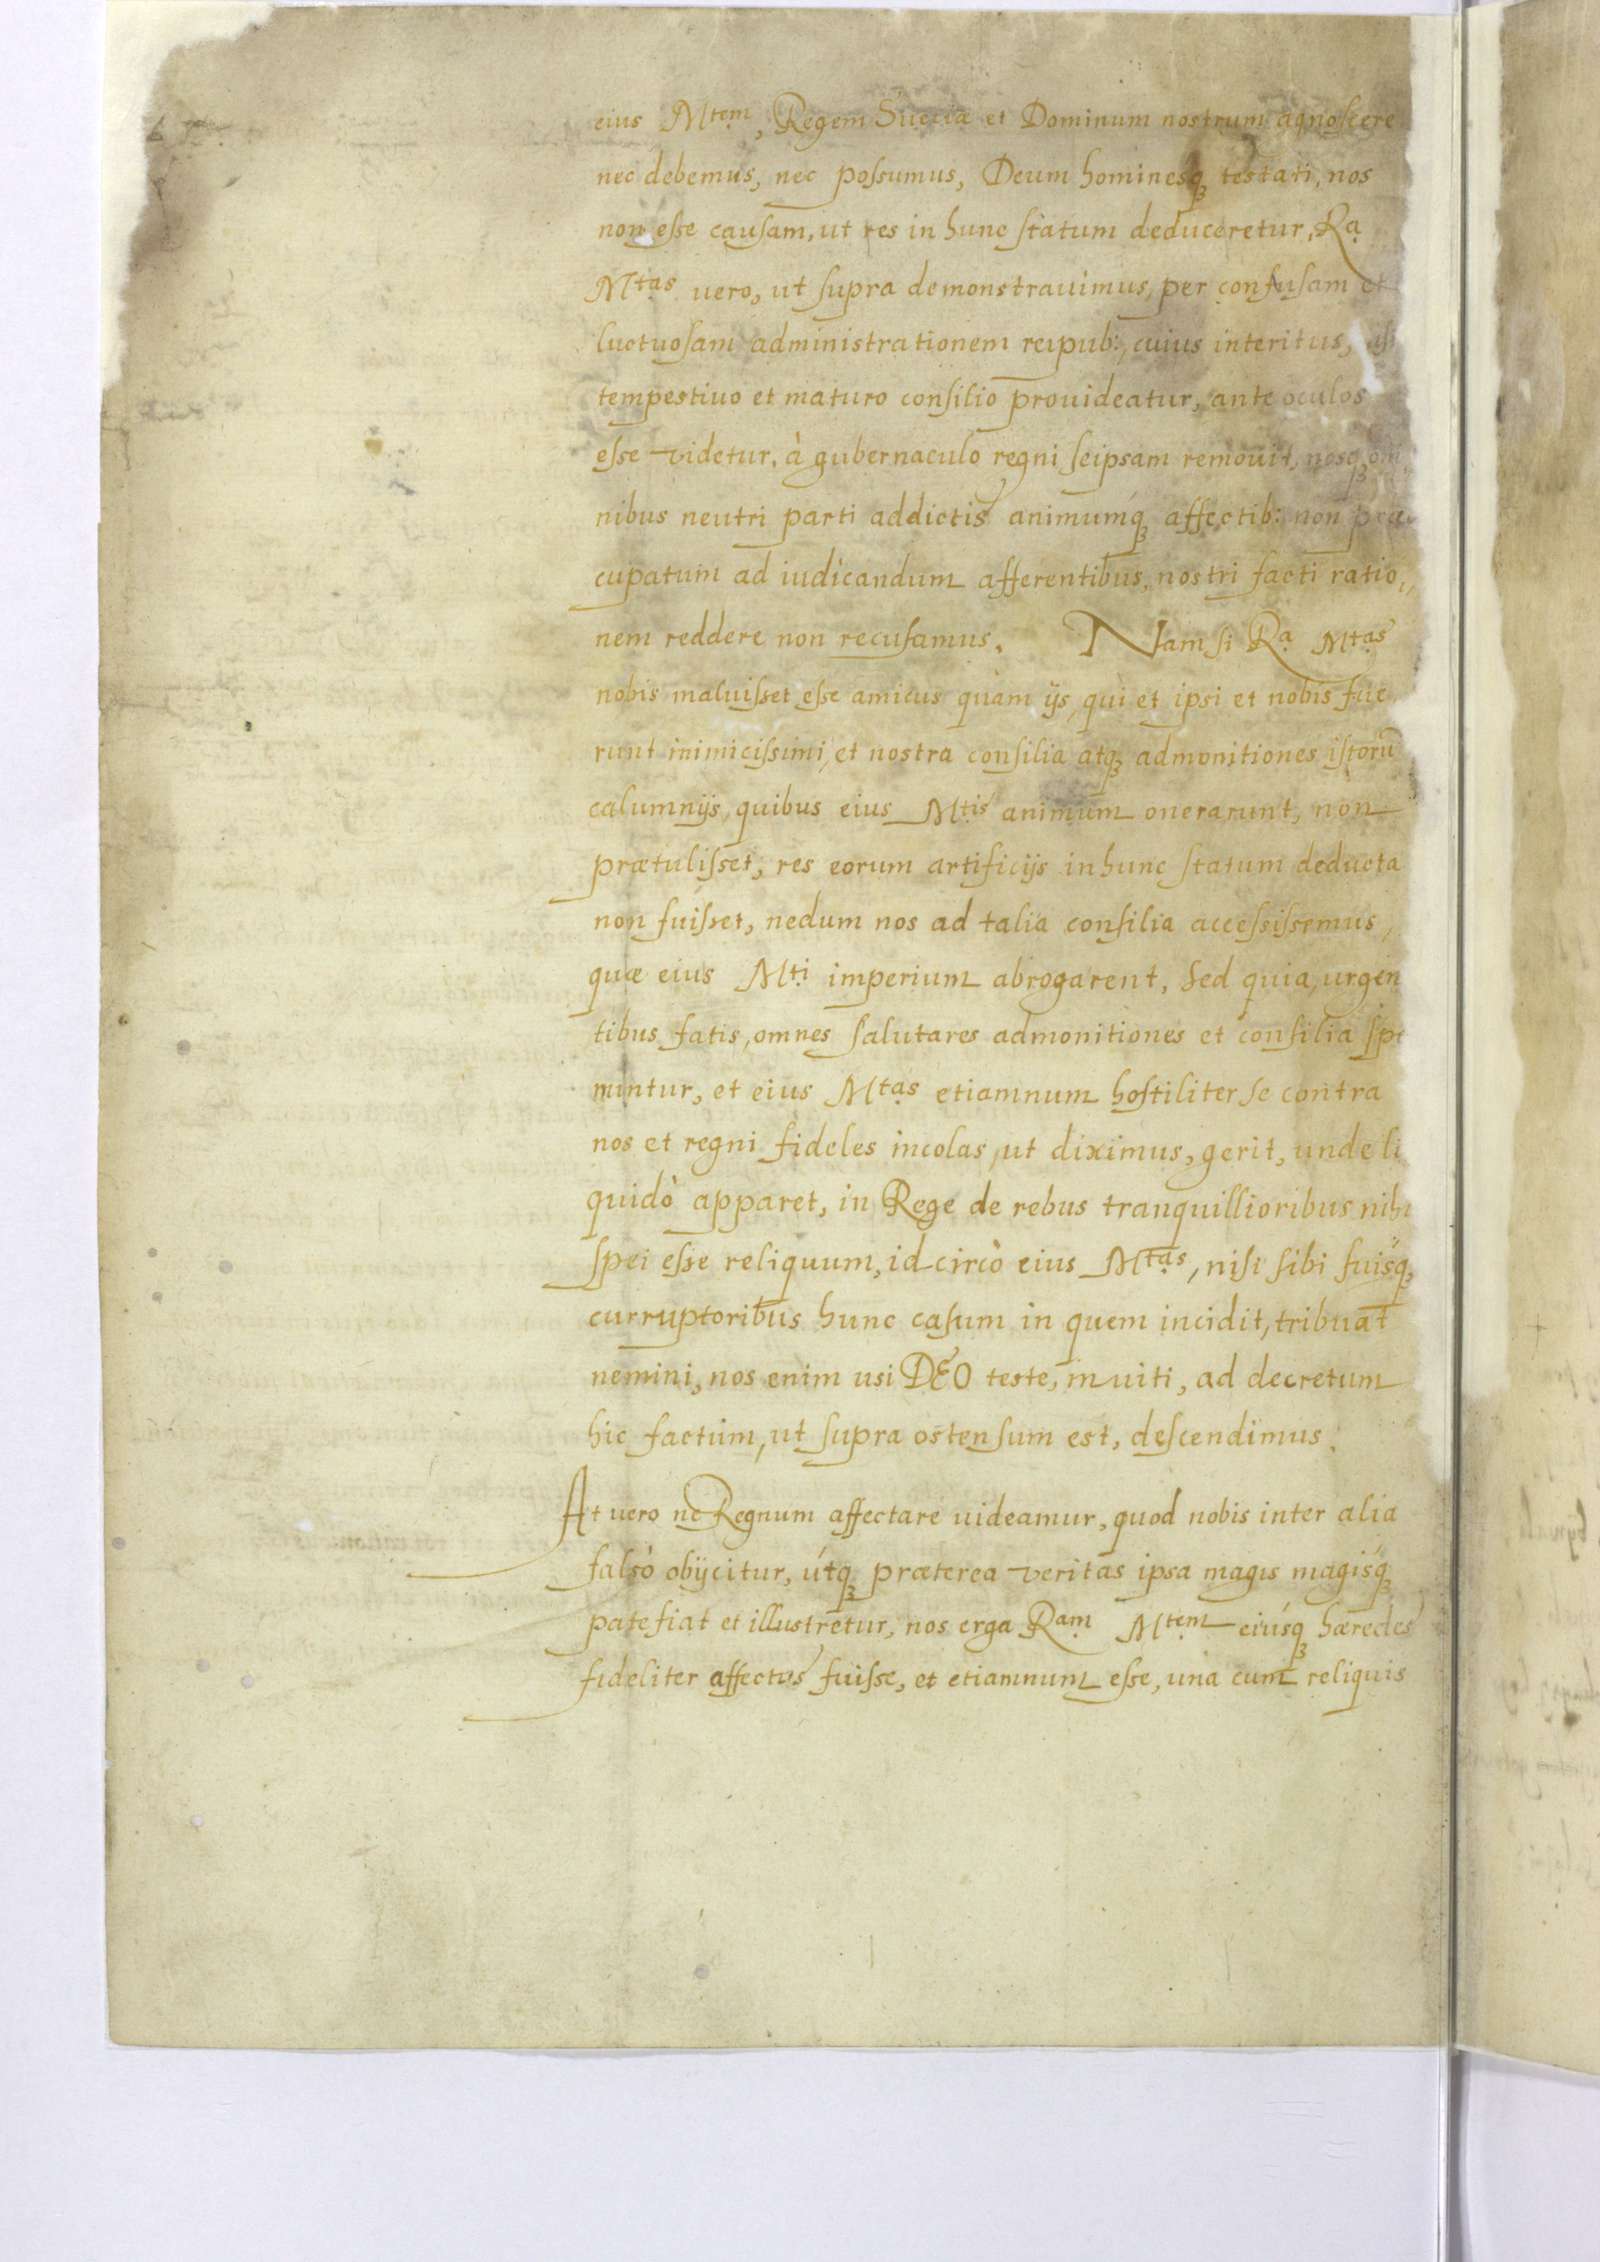 eius Mtem, Regem Sueciæ et Dominum nostrum agnoscere
nec debemus, nec possumus, Deum hominesq́ꝫ testati, nos
non esse causam, ut res in hunc statum deduceretur, Ra
Mtas vero, ut supra demonstrauimus, per confusam et
luctuosam administrationem reipub:, cuius interitus,
tempestiuo et maturo consilio prouideatur, ante oculos
esse videtur, à gubernaculo regni seipsam remouit, nosqꝫ om
nibus neutri parti addictis animumq́ꝫ affectib: non præ
cupatum ad iudicandum afferentibus, nostri facti ratio,,
nem reddere non recusamus. Nam si Ra Mtas
nobis maluisset esse amicus quàm ijs, qui et ipsi et nobis fue
runt inimicissimi, et nostra consilia atqꝫ admonitiones istorū
calumnijs, quibus eius Mtis animum onerarunt, non
prætulisset, res eorum artificijs in hunc statum deducta
non fuisset, nedum nos ad talia consilia accessissemus,
quæ eius Mti imperium abrogarent, Sed quia, urgen
tibus fatis, omnes salutares admonitiones et consilia spe
rnuntur, et eius Mtas etiamnum hostiliter se contra
nos et regni fideles incolas, ut diximus, gerit, unde li
quidò apparet, in Rege de rebus tranquillioribus nihi
spei esse reliquum, idcircò eius Mtas, nisi sibi suisq́ꝫ
curruptoribus hunc casum in quem incidit, tribuat
nemini, nos enim usi DEO teste, inuiti, ad decretum
hic factum, ut supra ostensum est, descendimus.
At vero ne Regnum affectare uideamur, quod nobis inter alia
falsò obijcitur, útqꝫ præterea veritas ipsa magis magisq́ꝫ
patefiat et illustretur, nos erga Ram Mtem eiusq́ꝫ hæredes
fideliter affectos fuisse, et etiamnum esse, una cum reliquis